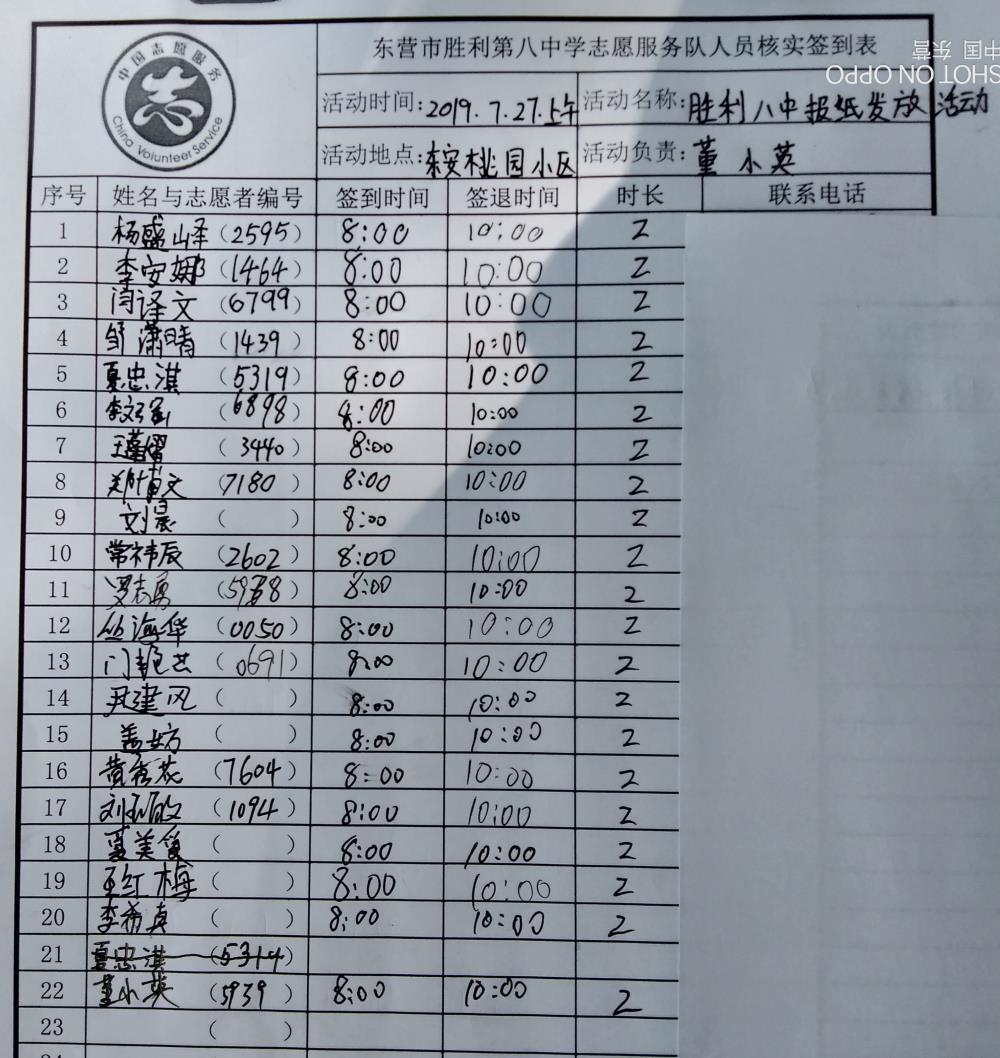 东营市胜利第八中学志愿服务队人员核实签到表
中国志愿服务
志
China Volunteer Service
SHOT ON OPPO
中国 东营
活动时间:2019.7.27.上午 活动名称:胜利八中报纸发放活动
活动地点:东安桃园小区 活动负责:董小英
序号 姓名与志愿者编号 签到时间 签退时间 时长 联系电话
1 杨盛峄(2595) 8:00 10:00 2
2 李安娜(1464) 8:00 10:00 2
3 闫译文(6799) 8:00 10:00 2
4 邹潇晴(1439) 8:00 10:00 2
5 夏忠淇(5319) 8:00 10:00 2
6 (6898) 8:00 10:00 2
7 (3440) 8:00 10:00 2
8 (7180) 8:00 10:00 2
9 刘晨( ) 8:00 10:00 2
10 常祎辰(2602) 8:00 10:00 2
11 8:00 10:00 2
12 丛海华(0050) 8:00 10:00 2
13 (0691) 8:00 10:00 2
14 尹建风( ) 8:00 10:00 2
15 盖女方( ) 8:00 10:00 2
16 (7604) 8:00 10:00 2
17 (1094) 8:00 10:00 2
18 ( ) 8:00 10:00 2
19 王红梅( ) 8:00 10:00 2
20 李希真( ) 8:00 10:00 2
21 夏忠淇(5314)
22 董小英(5939) 8:00 10:00 2
23 ( )